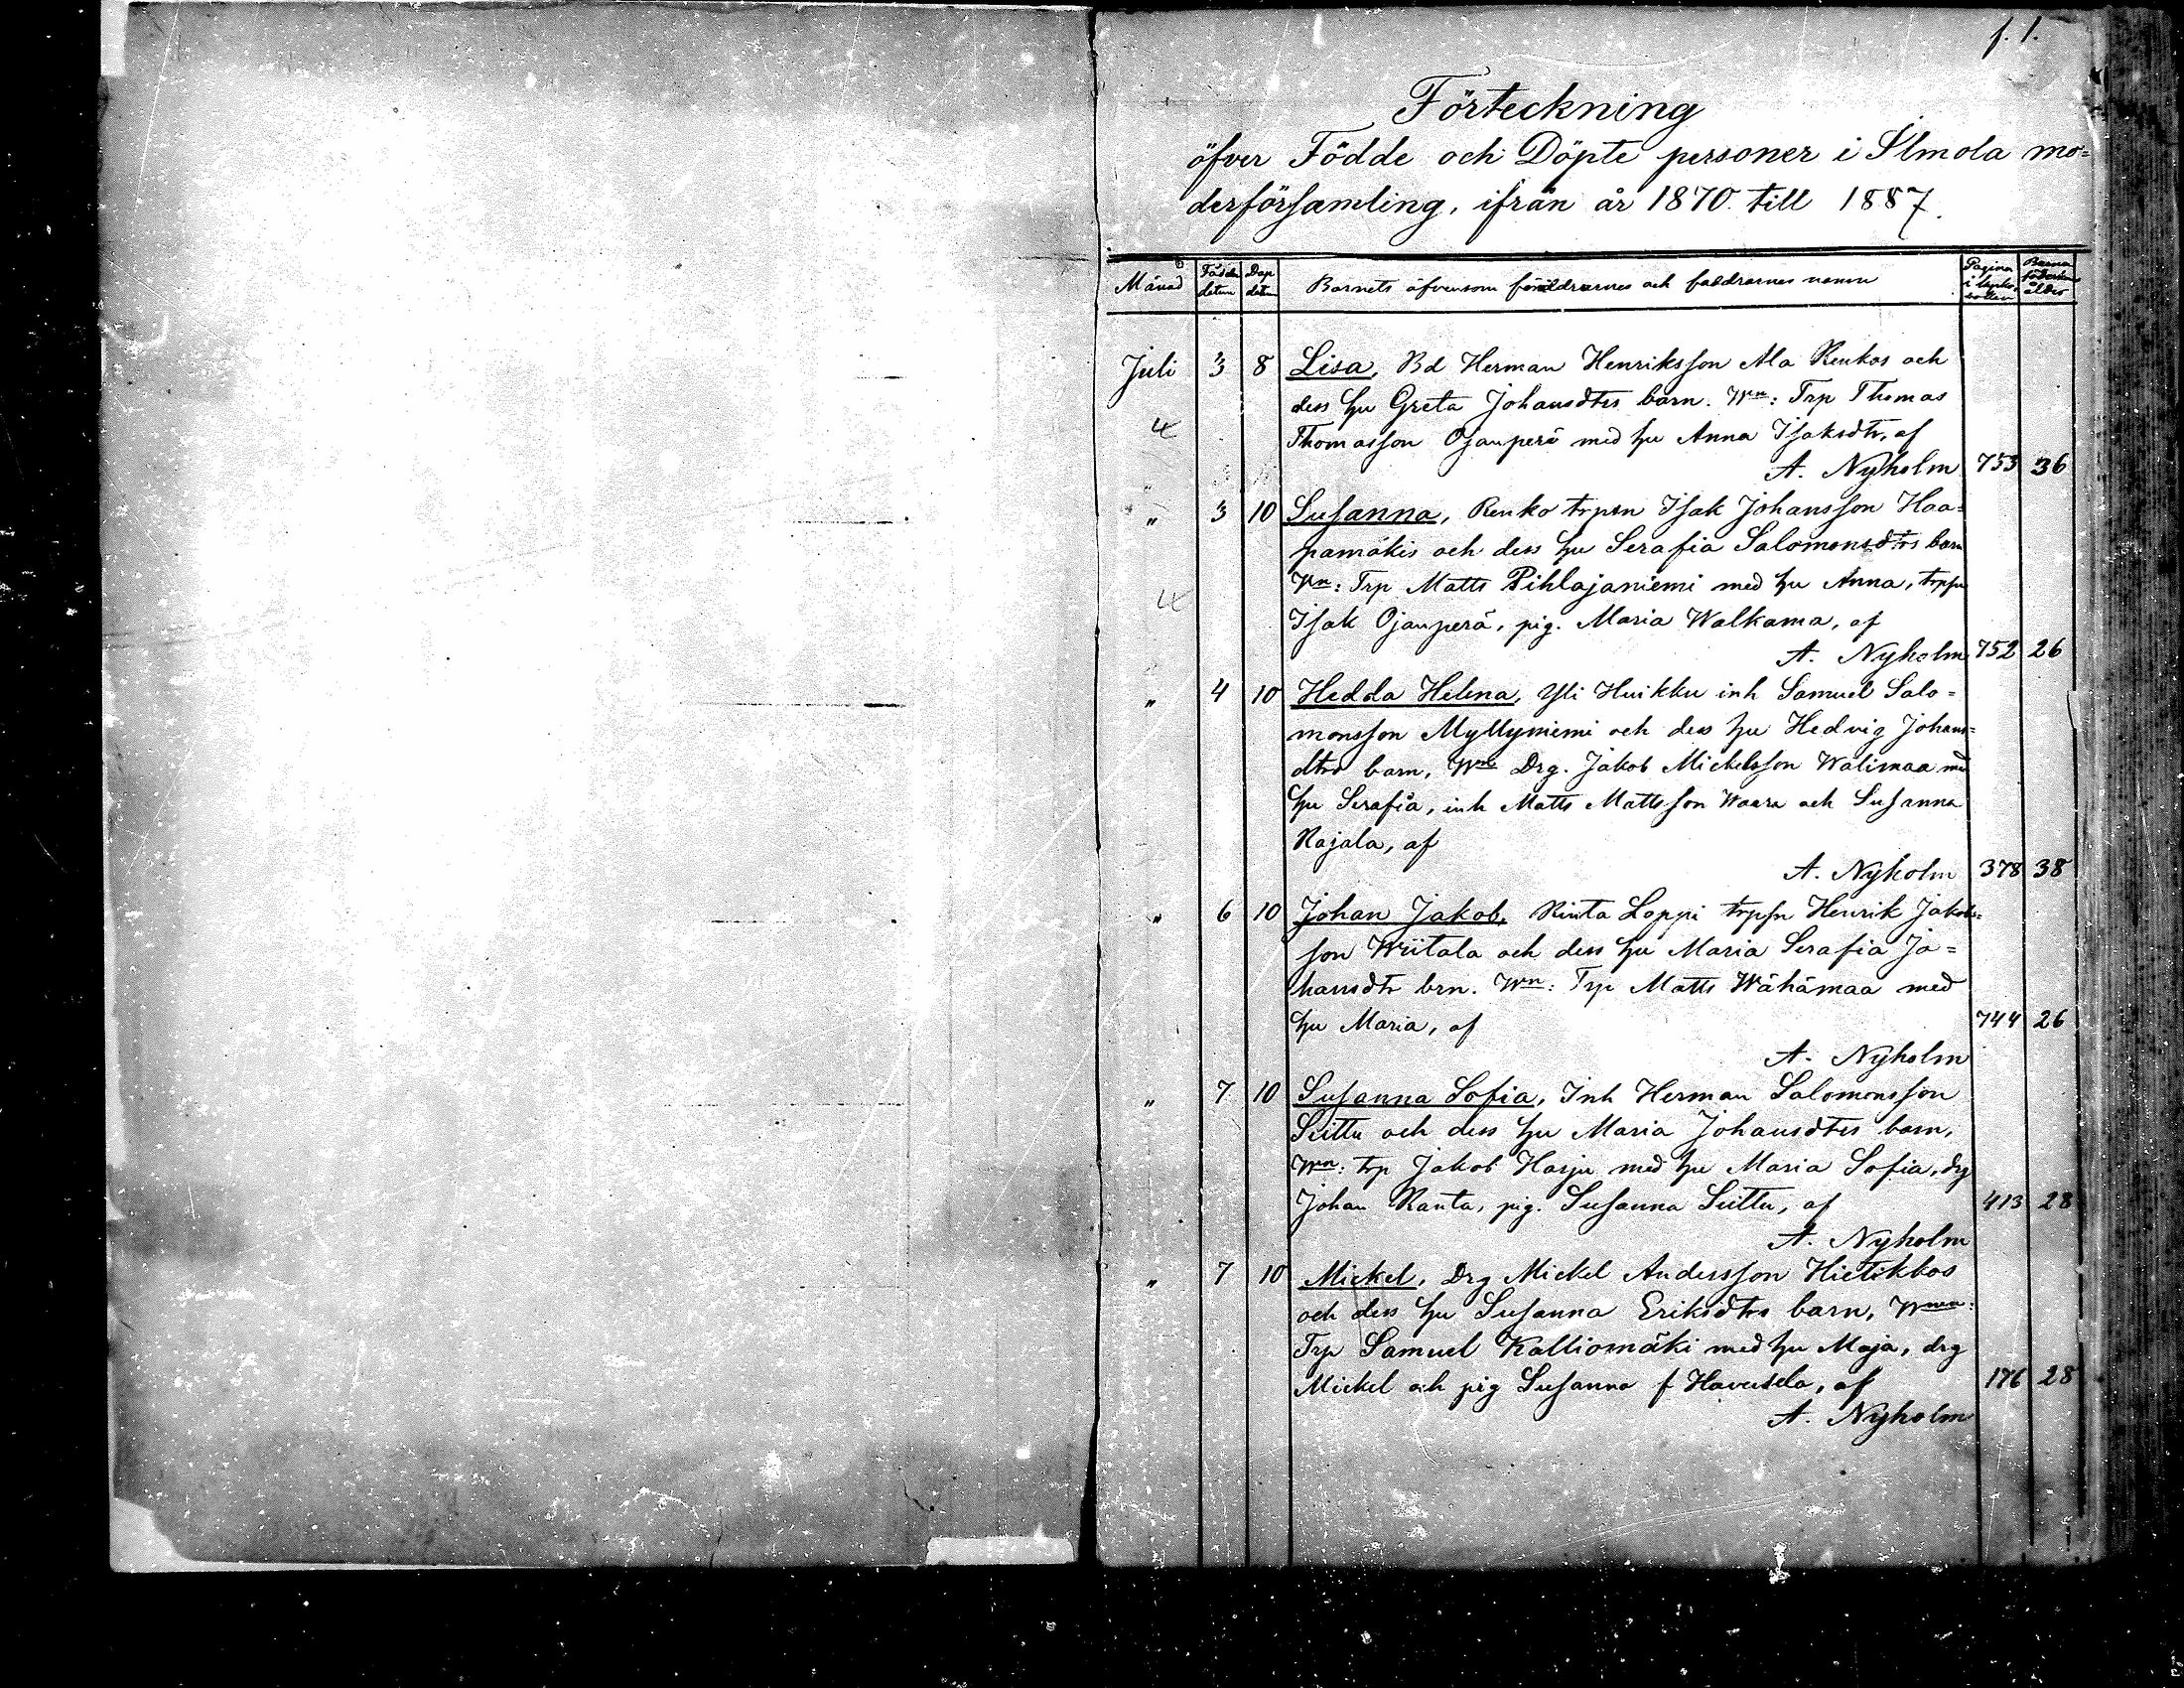 f. 1.
Förteckning
öfver Födde och Döpte personer i Ilmola mo=
derförsamling, ifrån år 1870 till 1887.
Månad Födelse datum Dop datum Barnets äfvensom föräldrarnes och faddrarnes namn Pagina i kyrko-boken ålder
Juli 3 8 Lisa, Bd Herman Henriksson Ala Renkos och
dess hu Greta Johansdtrs barn. Wn: Trp Thomas
4
Thomasson Ojanperä med hu Anna Isaksdtr, af
A. Nyholm 753 36
" 3 10 Susanna, Renko trpsn Isak Johansson Haa=
pamäkis och dess hu Serafia Salomonsdtrs barn
Wn: Trp Matts Pihlajaniemi med hu Anna,
4
Isak Ojanperä, pig. Maria Walkama, af
A. Nyholm 752 26
" 4 10 Hedda Helena, Yli Huikku inh Samuel Salo=
monsson Myllyniemi och dess hu Hedvig Johans=
dtrs barn, Wne Drg. Jakob Mickelsson Walimaa med
hu Serafia, inh Matts Mattsson Waara och Susanna
Rajala, af
A. Nyholm 378 38
" 6 10 Johan Jakob, Rinta Loppi trpsn Henrik Jakobs=
son Wiitala och dess hu Maria Serafia Jo=
hansdtr brn. Wn: Trp Matts Wähämaa med
hu Maria, af 744 26
A. Nyholm
" 7 10 Susanna Sofia, Inh Herman Salomonsson
Luttu och dess hu Maria Johansdtrs barn,
Wn: trp Jakob Harju med hu Maria Sofia, drg
Johan Ranta, pig. Susanna Luttu, af 413 28
A. Nyholm
" 7 10 Mickel, Drg Mickel Andersson Hietikkos
och dess hu Susanna Eriksdtrs barn,
Trp Samuel Kalliomäki med hu Maja, drg
Mickel och pig Susanna f Havusela, af 176 28
A. Nyholm